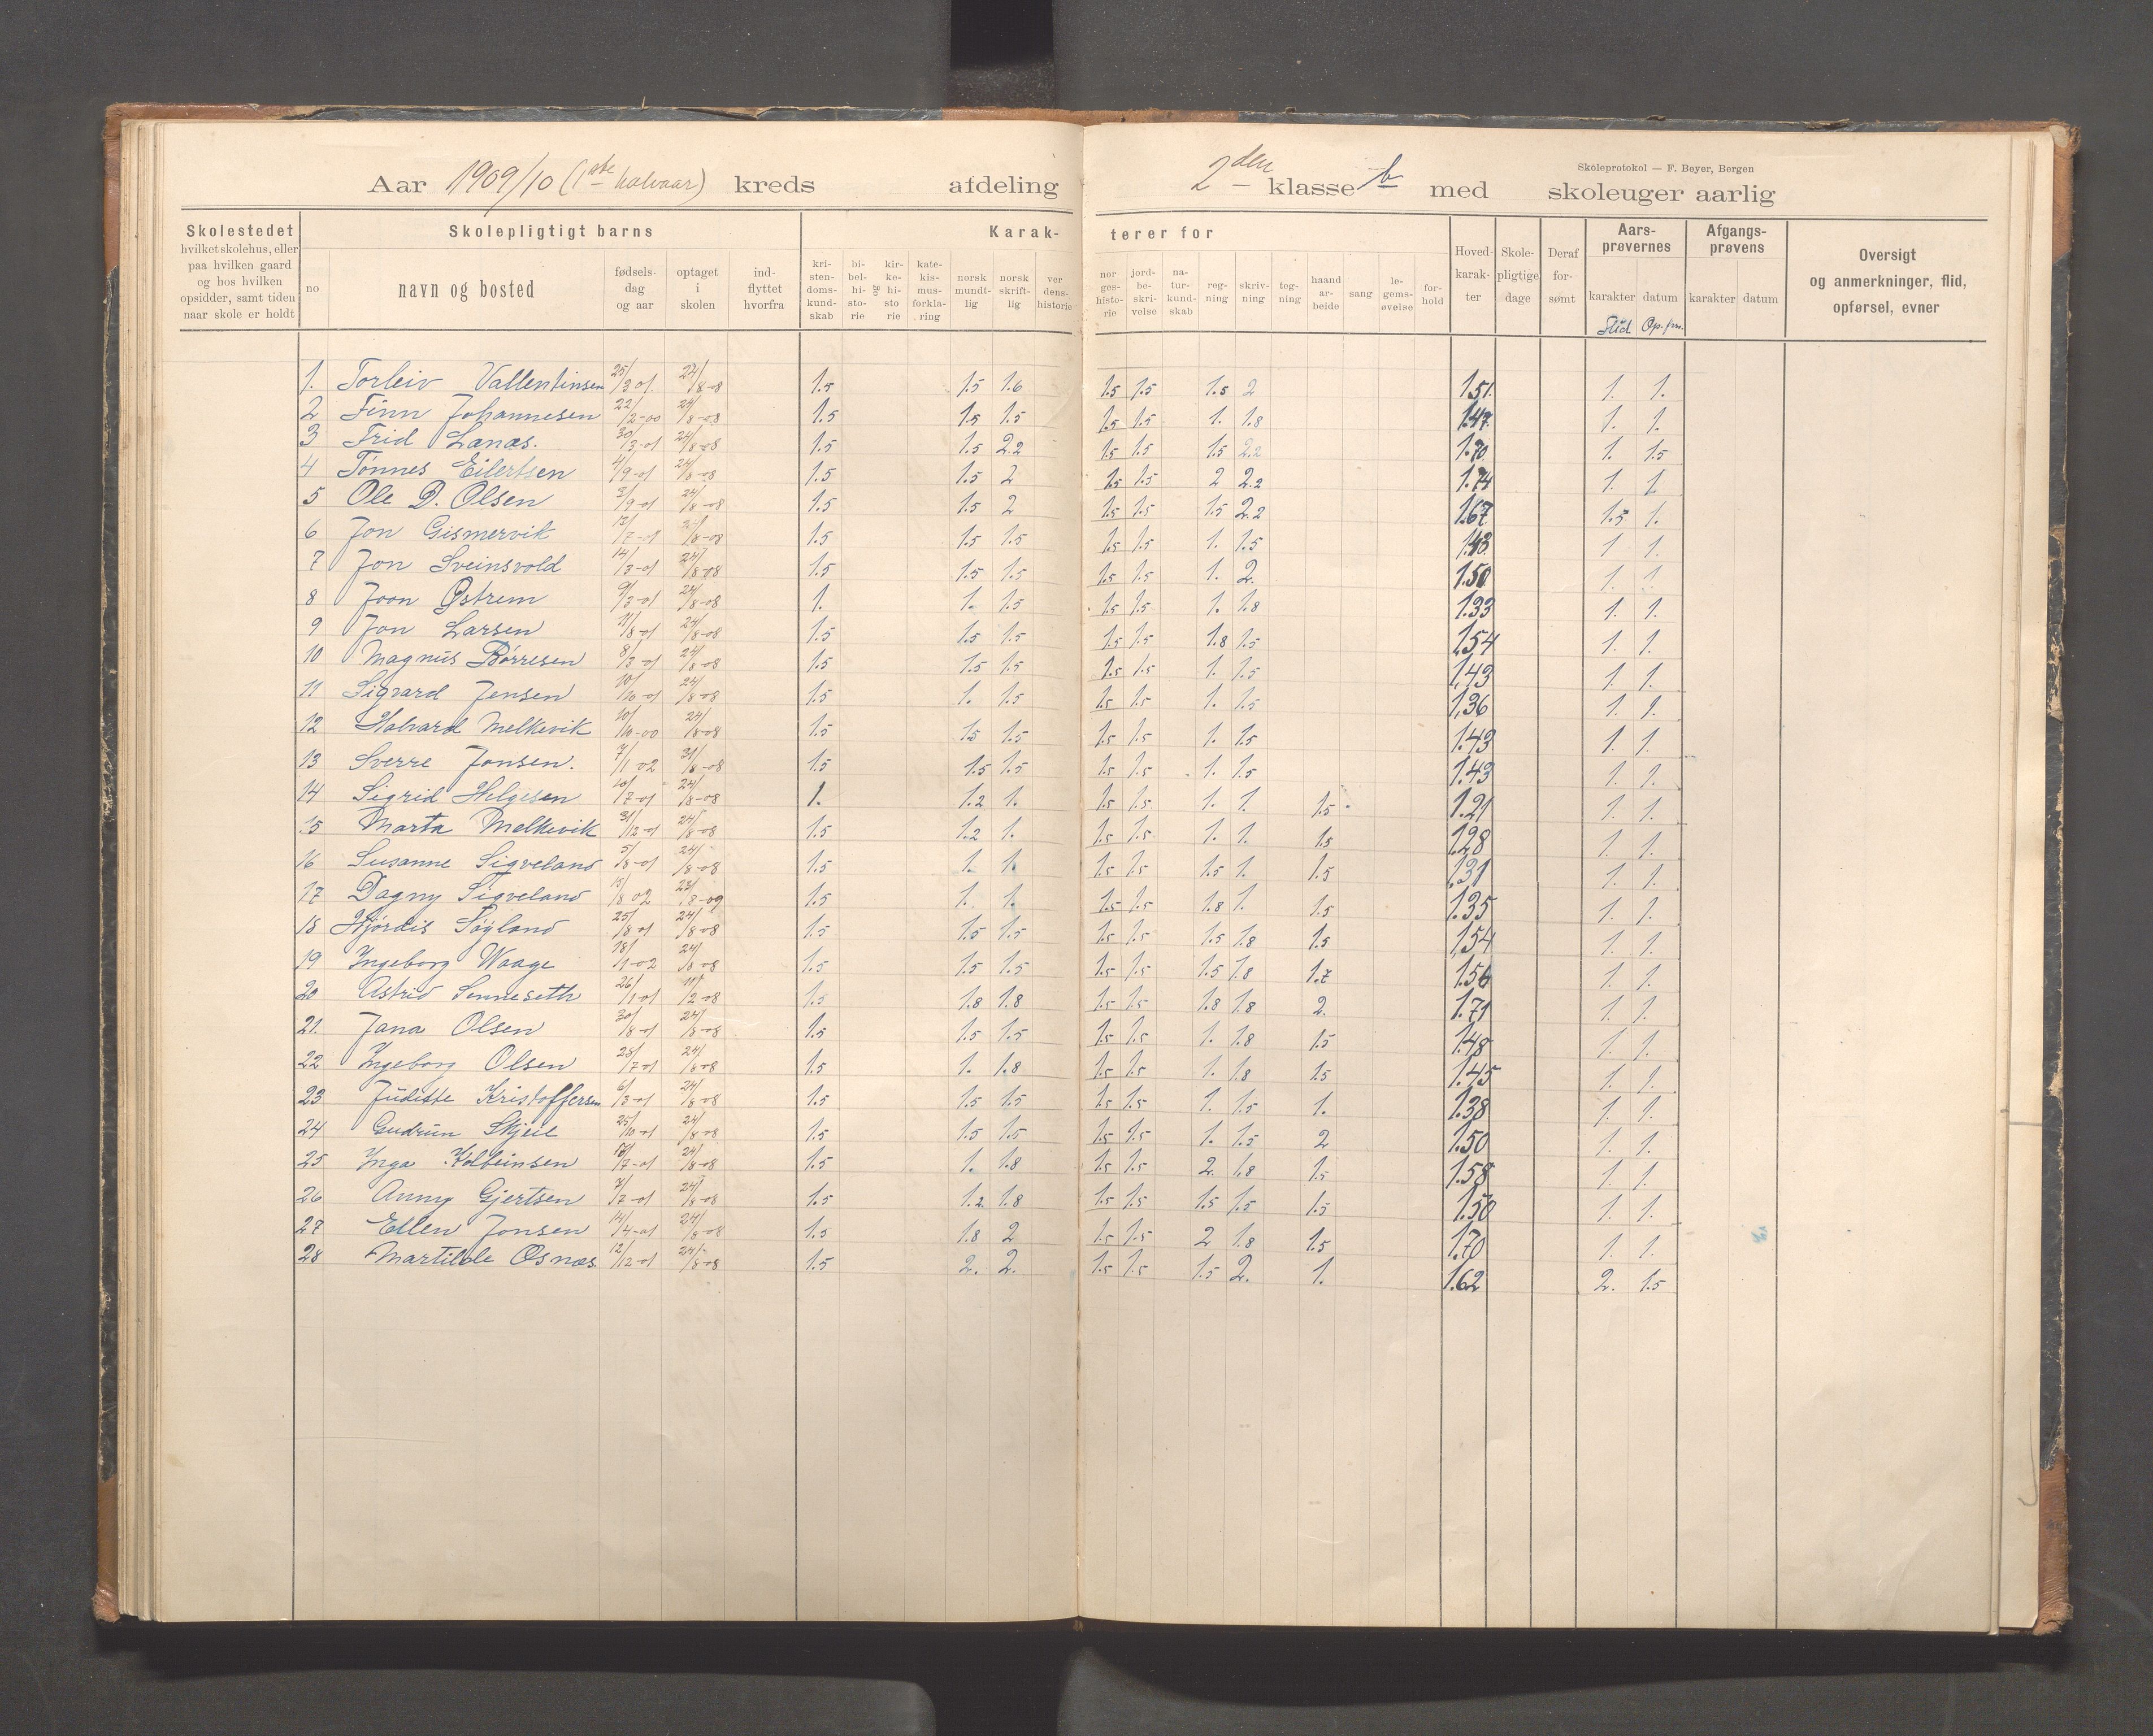 Skoleprotokol — F. Beyer, Bergen
Aar 1909/10 (1ste halvaar) kreds afdeling 2den klasse b med skoleuger aarlig
Skolestedet hvilket skolehus, eller paa hvilken gaard og hos hvilken opsidder, samt tiden naar skole er holdt
Skolepligtigt barns
no navn og bosted fødselsdag og aar optaget i skolen indflyttet hvorfra
Karakterer for
kristendomskundskab bibelhistorie og kirkehistorie katekismusforklaring norsk mundtlig norsk skriftlig verdenshistorie norgeshistorie jordbeskrivelse naturkundskab regning skrivning tegning haandarbeide sang legemsøvelse forhold
Hovedkarakter Skolepligtige dage Deraf forsømt
Aarsprøvernes karakter datum
Flid Op.førs.
Afgangsprøvens karakter datum
Oversigt og anmerkninger, flid, opførsel, evner
1. Torleiv Vallentinsen 25/3 01. 24/8-08 1.5 1.5 1.6 1.5 1.5 1.5 2 1.51. 1. 1.
2 Finn Johannesen 22/2-00 24/8-08 1.5 1.5 1.5 1.5 1.5 1. 1.8 1.47. 1. 1.
3 Frid Lanæs. 30/3-01 24/8-08 1.5 1.5 2.2 1.5 1.5 1.5 2.2 1.70 1. 1.5
4 Tønnes Eilertsen 4/9-01 24/8-08 1.5 1.5 2 1.5 1.5 2 2.2 1.74 1. 1.
5 Ole D. Olsen 3/9-01 24/8-08 1.5 1.5 2 1.5 1.5 1.5 2.2 1.67 1.5 1.
6 Jon Gismervik 13/7-01 24/8-08 1.5 1.5 1.5 1.5 1.5 1. 1.5 1.43. 1 1.
7 Jon Sveinsvold 14/3-01 24/8-08 1.5 1.5 1.5 1.5 1.5 1. 2. 1.50 1. 1.
8 Joon Østrem 9/3-01 24/8-08 1. 1. 1.5 1.5 1.5 1. 1.8 1.33 1. 1.
9 Jon Larsen 11/8-01 24/8-08 1.5 1.5 1.5 1.5 1.5 1.8 1.5 1.54 1. 1.
10 Magnus Børresen 8/3-01 24/8-08 1.5 1.5 1.5 1.5 1.5 1. 1.5 1,43 1 1.
11 Sigvard Jensen 10/10-01 24/8-08 1.5 1. 1.5 1.5 1.5 1. 1.5 1,36 1. 1.
12 Halvard Melkevik 10/10-00 24/8-08 1.5 1.5 1.5 1.5 1.5 1. 1.5 1.43 1. 1.
13 Sverre Jonsen. 7/1 02 31/8-08 1.5 1.5 1.5 1.5 1.5 1. 1.5 1.43 1. 1.
14 Sigrid Helgesen 10/7-01 24/8-08 1. 1.2 1. 1.5 1.5 1. 1. 1.5 1.21 1. 1.
15 Marta Melkevik 31/12-01 24/8-08 1.5 1.2 1. 1.5 1.5 1. 1. 1.5 1.28 1. 1.
16 Susanne Sigveland 5/8-01 24/8-08 1.5 1. 1. 1.5 1.5 1.5 1. 1.5 1.31 1. 1.
17 Dagny Sigveland 8 02 8-09 1.5 1. 1. 1.5 1.5 1.8 1. 1.5 1.35 1. 1.
18 Hjørdis Søyland 25/8 01 24/8-08 1.5 1.5 1.5 1.5 1.5 1.5 1.8 1.5 1,54 1. 1.
19 Ingeborg Waage 18/1-02 24/8-08 1.5 1.5 1.5 1.5 1.5 1.5 1.8 1.7 1.56 1. 1.
20 Astrid Senneseth 26/1-01 11/2-08 1.5 1.8 1.8 1.5 1.5 1.8 1.8 2. 1.71 1. 1.
21. Jana Olsen 30/8-01 24/8-08 1.5 1.5 1.5 1.5 1.5 1. 1.8 1.5 1.48 1. 1.
22 Ingeborg Olsen 28/7-01 24/8-08 1.5 1. 1.8 1.5 1.5 1. 1.8 1.5 1.45 1. 1.
23 Juditte Kristoffersen 6/3-01 24/8-08 1.5 1.5 1.5 1.5 1.5 1. 1.5 1. 1.38 1. 1.
24 Gudrun Skjeie 25/10-01 24/8-08 1.5 1.5 1.5 1.5 1.5 1. 1.5 2 1.50 1. 1.
25 Inga Kolbeinsen 7-01 24/8-08 1.5 1. 1.8 1.5 1.5 2. 1.8 1.5 1.58 1. 1.
26 Anny Gjertsen 7/7-01 24/8-08 1.5 1.2 1.8 1.5 1.5 1.5 1.5 1.5 1.50 1. 1.
27 Ellen Jonsen 14/4-01 24/8-08 1.5 1.8 2 1.5 1.5 2 1.8 1.5 1.70 1. 1.
28 Martilde Osnæs. 12/12-01 24/8-08 1.5 2. 2. 1.5 1.5 1.5 2. 1. 1.62 2. 1.5